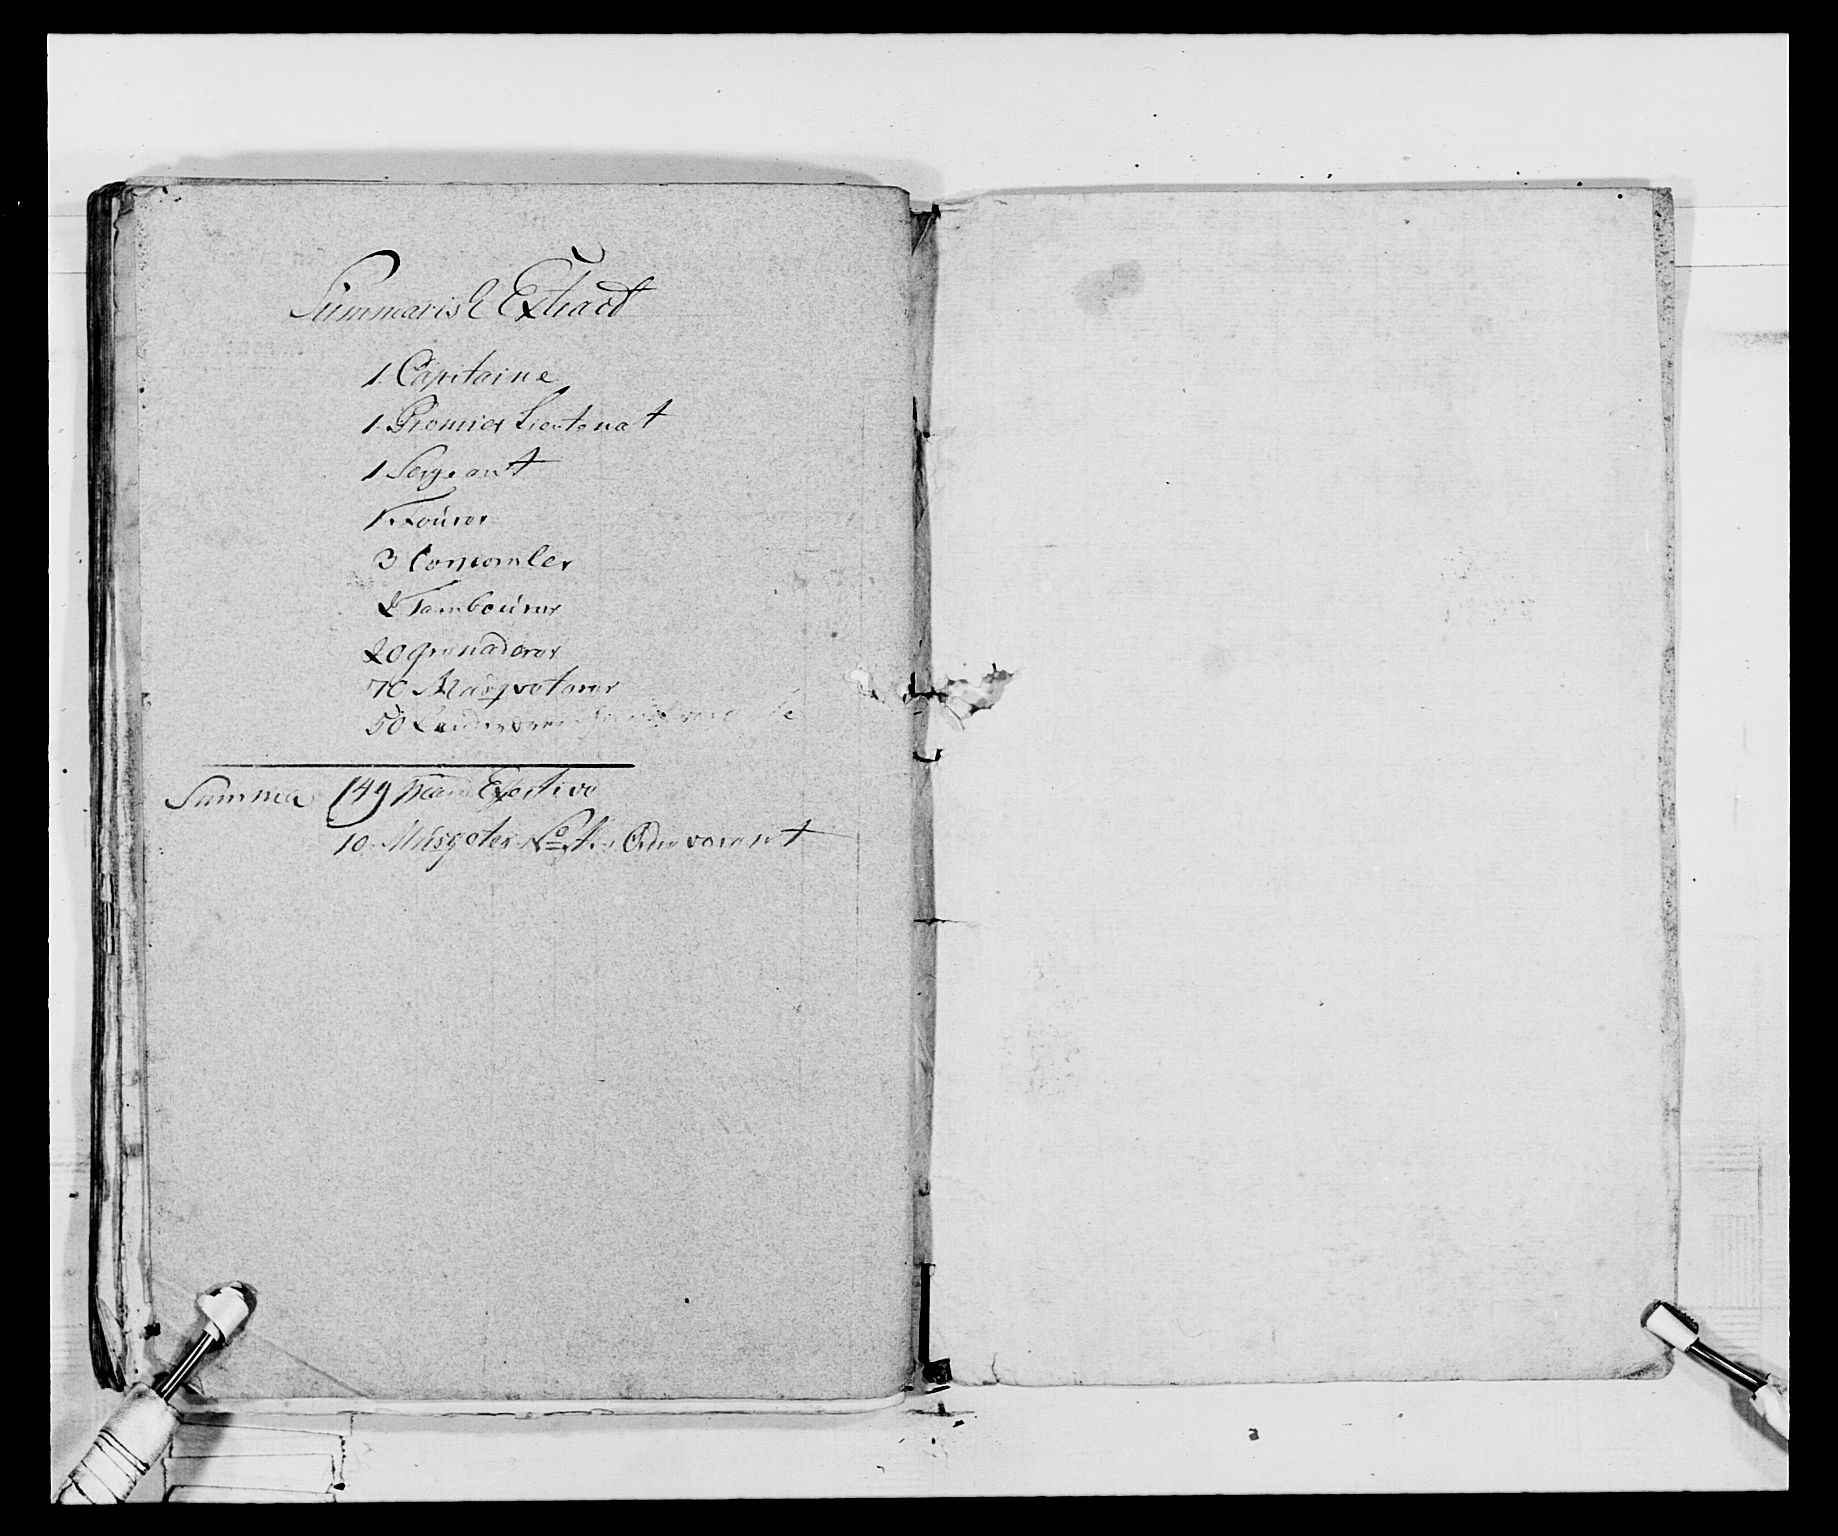 Summarisk Extract
1. Capitaine
1. Premier Lieutenat
1 Sergeant
1. Fourer
3 Corporaler
2 Tambourer
20 Grenaderer
70 Musqveterer
50 Landeværn
Summa 149 Mand Efective
10. Musqveter No